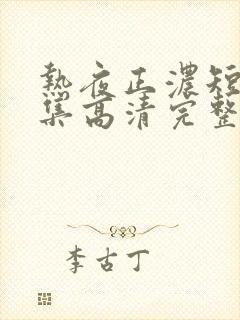 热夜正浓短
集高清完整
李古丁